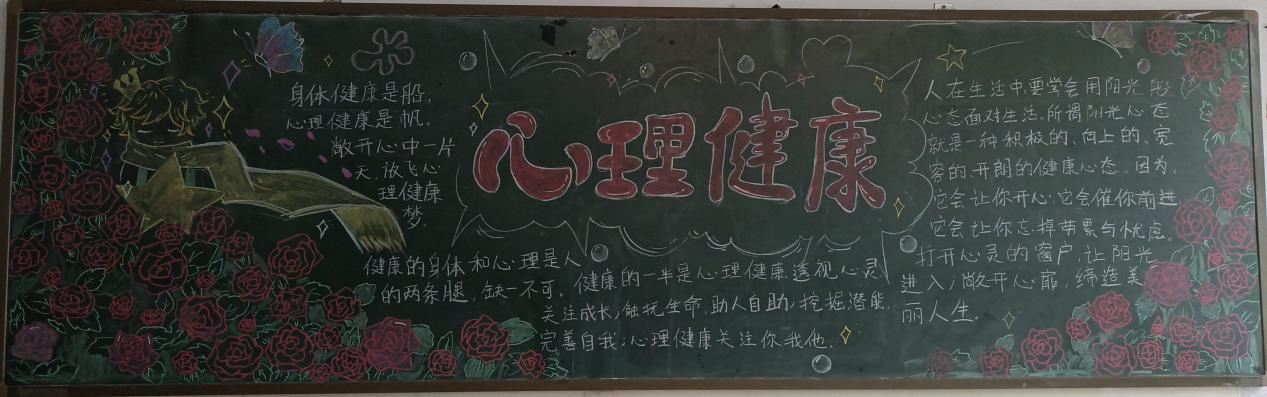 心理健康
身体健康是船，
心理健康是帆。
敞开心中一片
天，放飞心
理健康
梦。
健康的身体和心理是人
的两条腿，缺一不可。
健康的一半是心理健康，透视心灵
关注成长，触抚生命，助人自助，挖掘潜能，
完善自我；心理健康关注你我他。
人在生活中，要学会用阳光般
心态面对生活。所谓阳光心态
就是一种积极的、向上的、宽
容的、开朗的健康心态。因为，
它会让你开心，它会催你前进
它会让你忘掉劳累与忧虑。
打开心灵的窗户，让阳光
进入，敞开心扉，缔造美
丽人生。